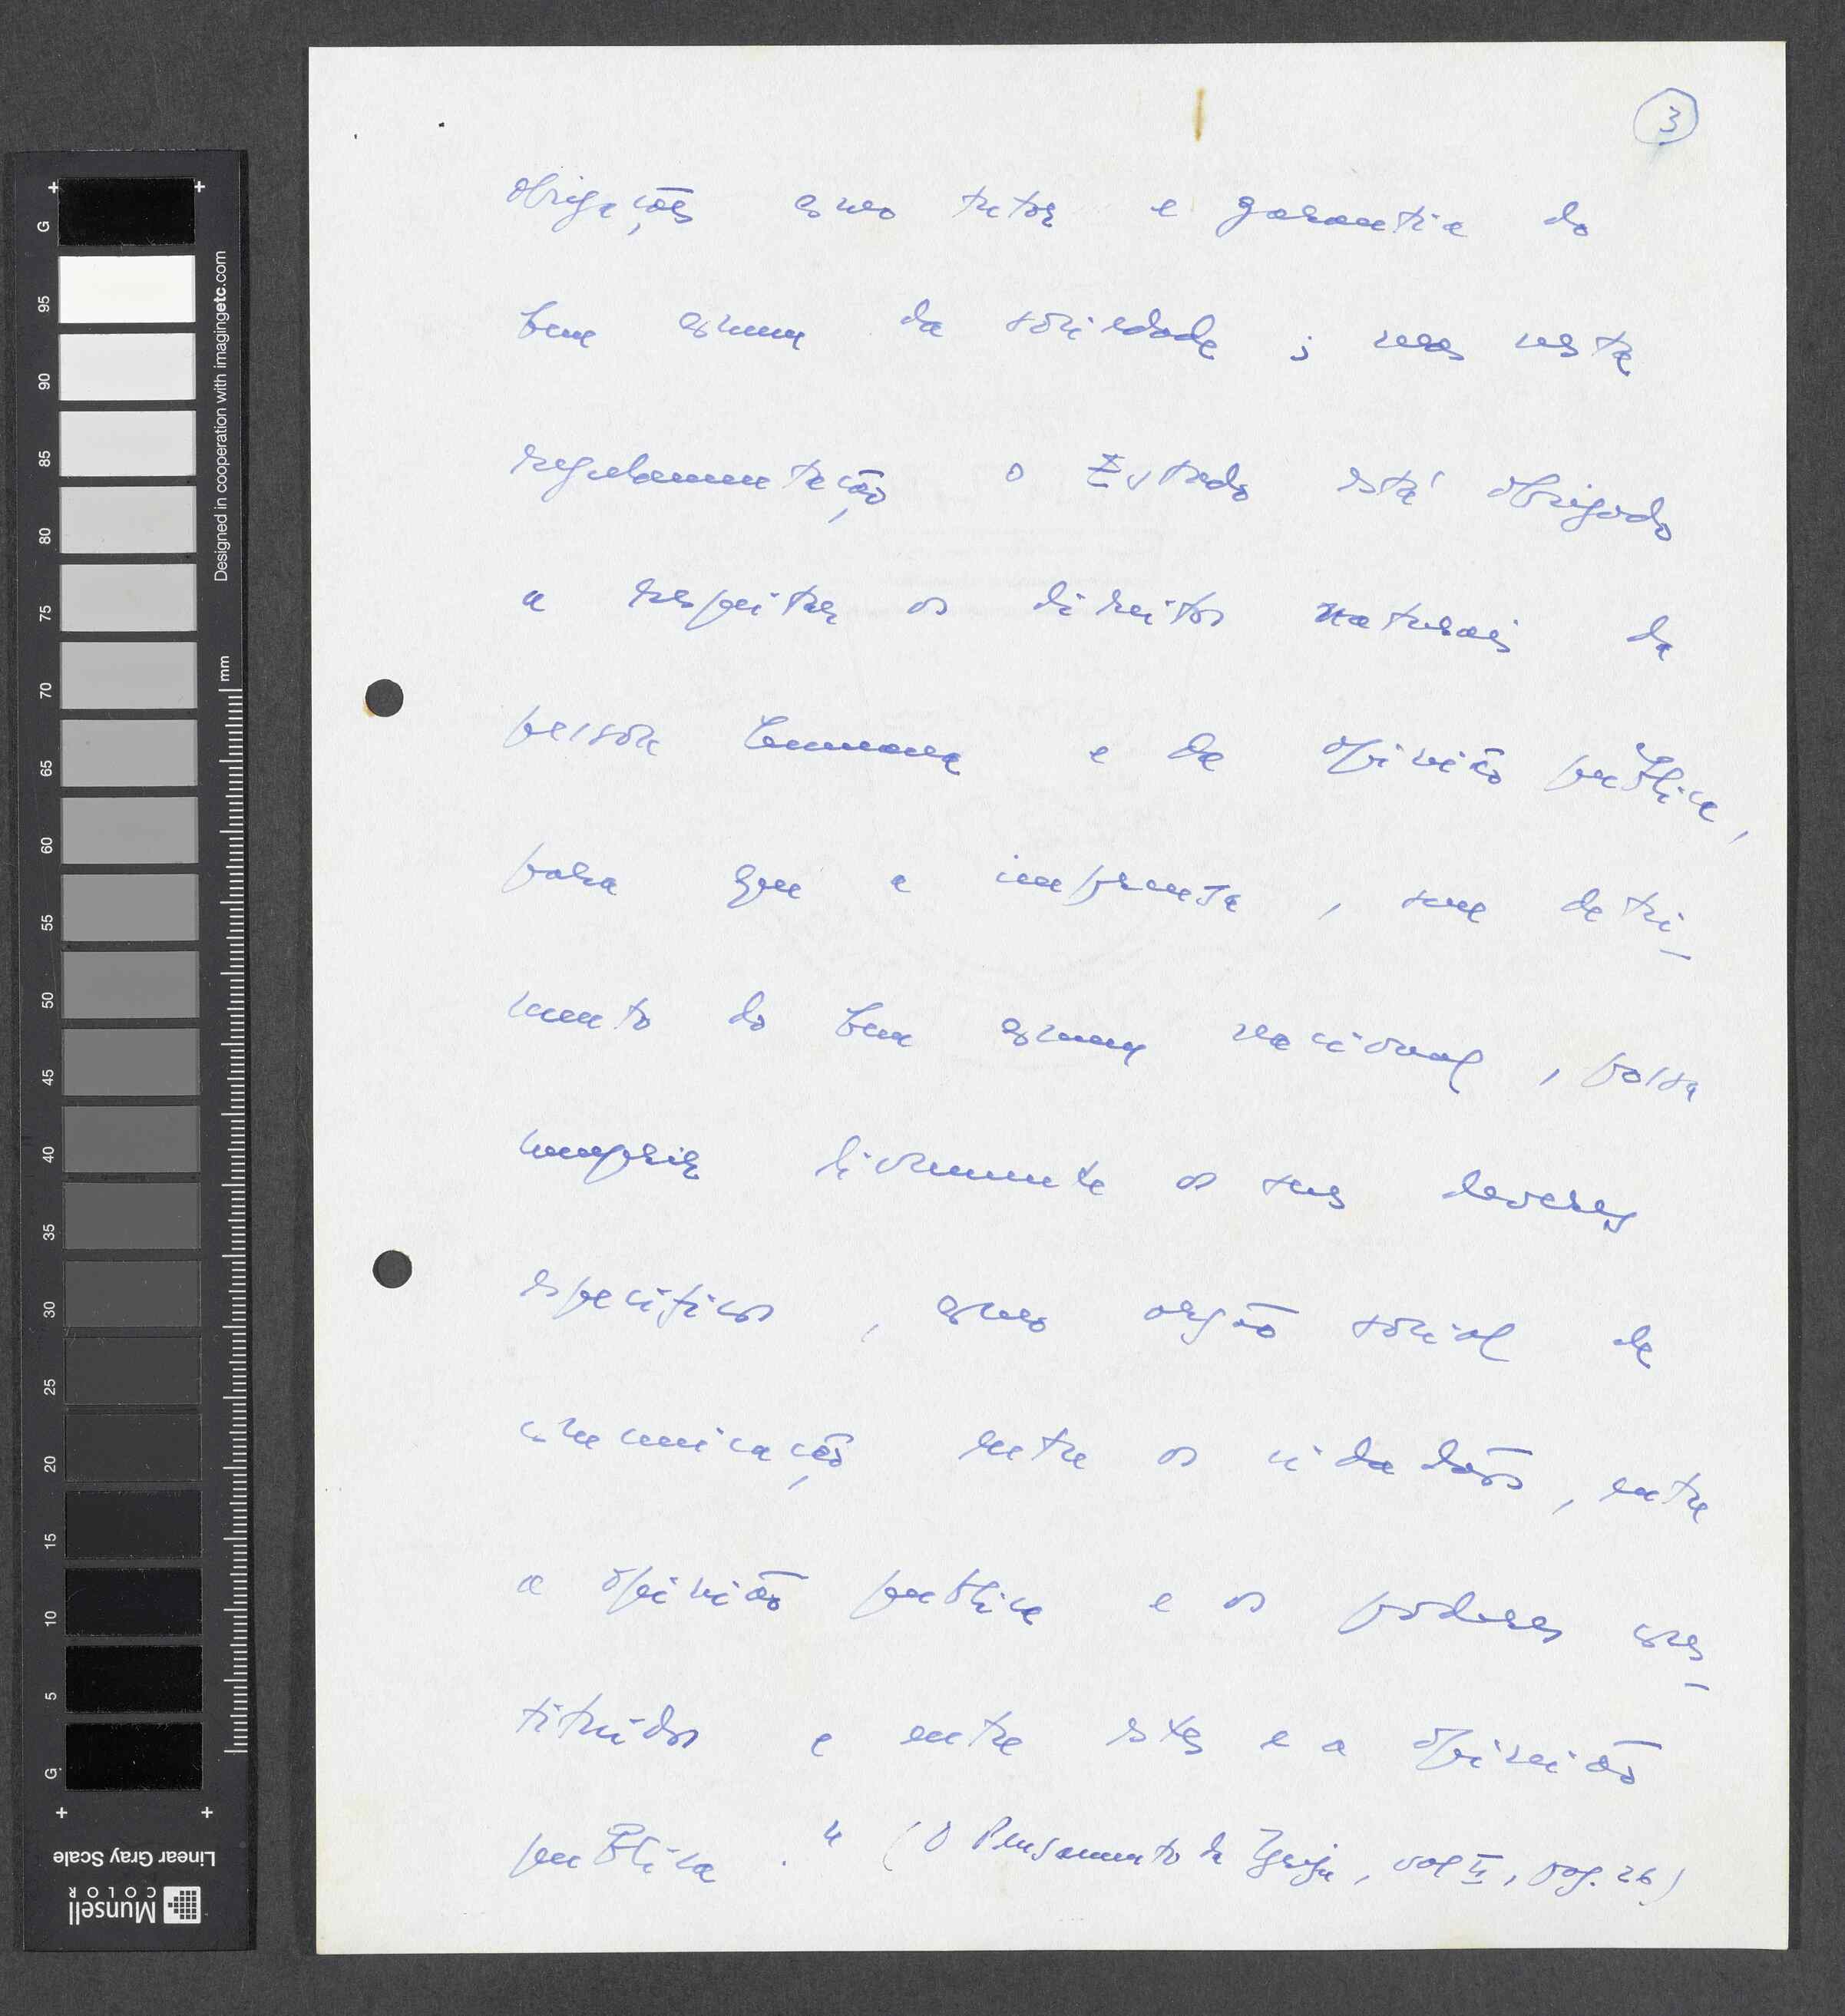 3
obrigações como tutor e garantia do
bem comum da sociedade ; mas nesta
regulamentação o Estado está obrigado
a respeitar os direitos naturais da
pessoa humana e da opinião pública,
para que a imprensa , sem detri-
mento do bem comum nacional , possa
cumprir livremente os seus deveres
específicos , como orgão social de
comunicação entre os cidadãos , entre
a opinião publica e os poderes cons-
tituidos e entre estes e a opinião
publica ." (O Pensamento da Igreja, vol II, pag. 26)
G
95
90
85
80
75
70
65
60
55
50
45
40
35
30
25
20
15
10
5
G
Designed in cooperation with imagingetc.com
mm
Linear Gray Scale
Munsell
COLOR